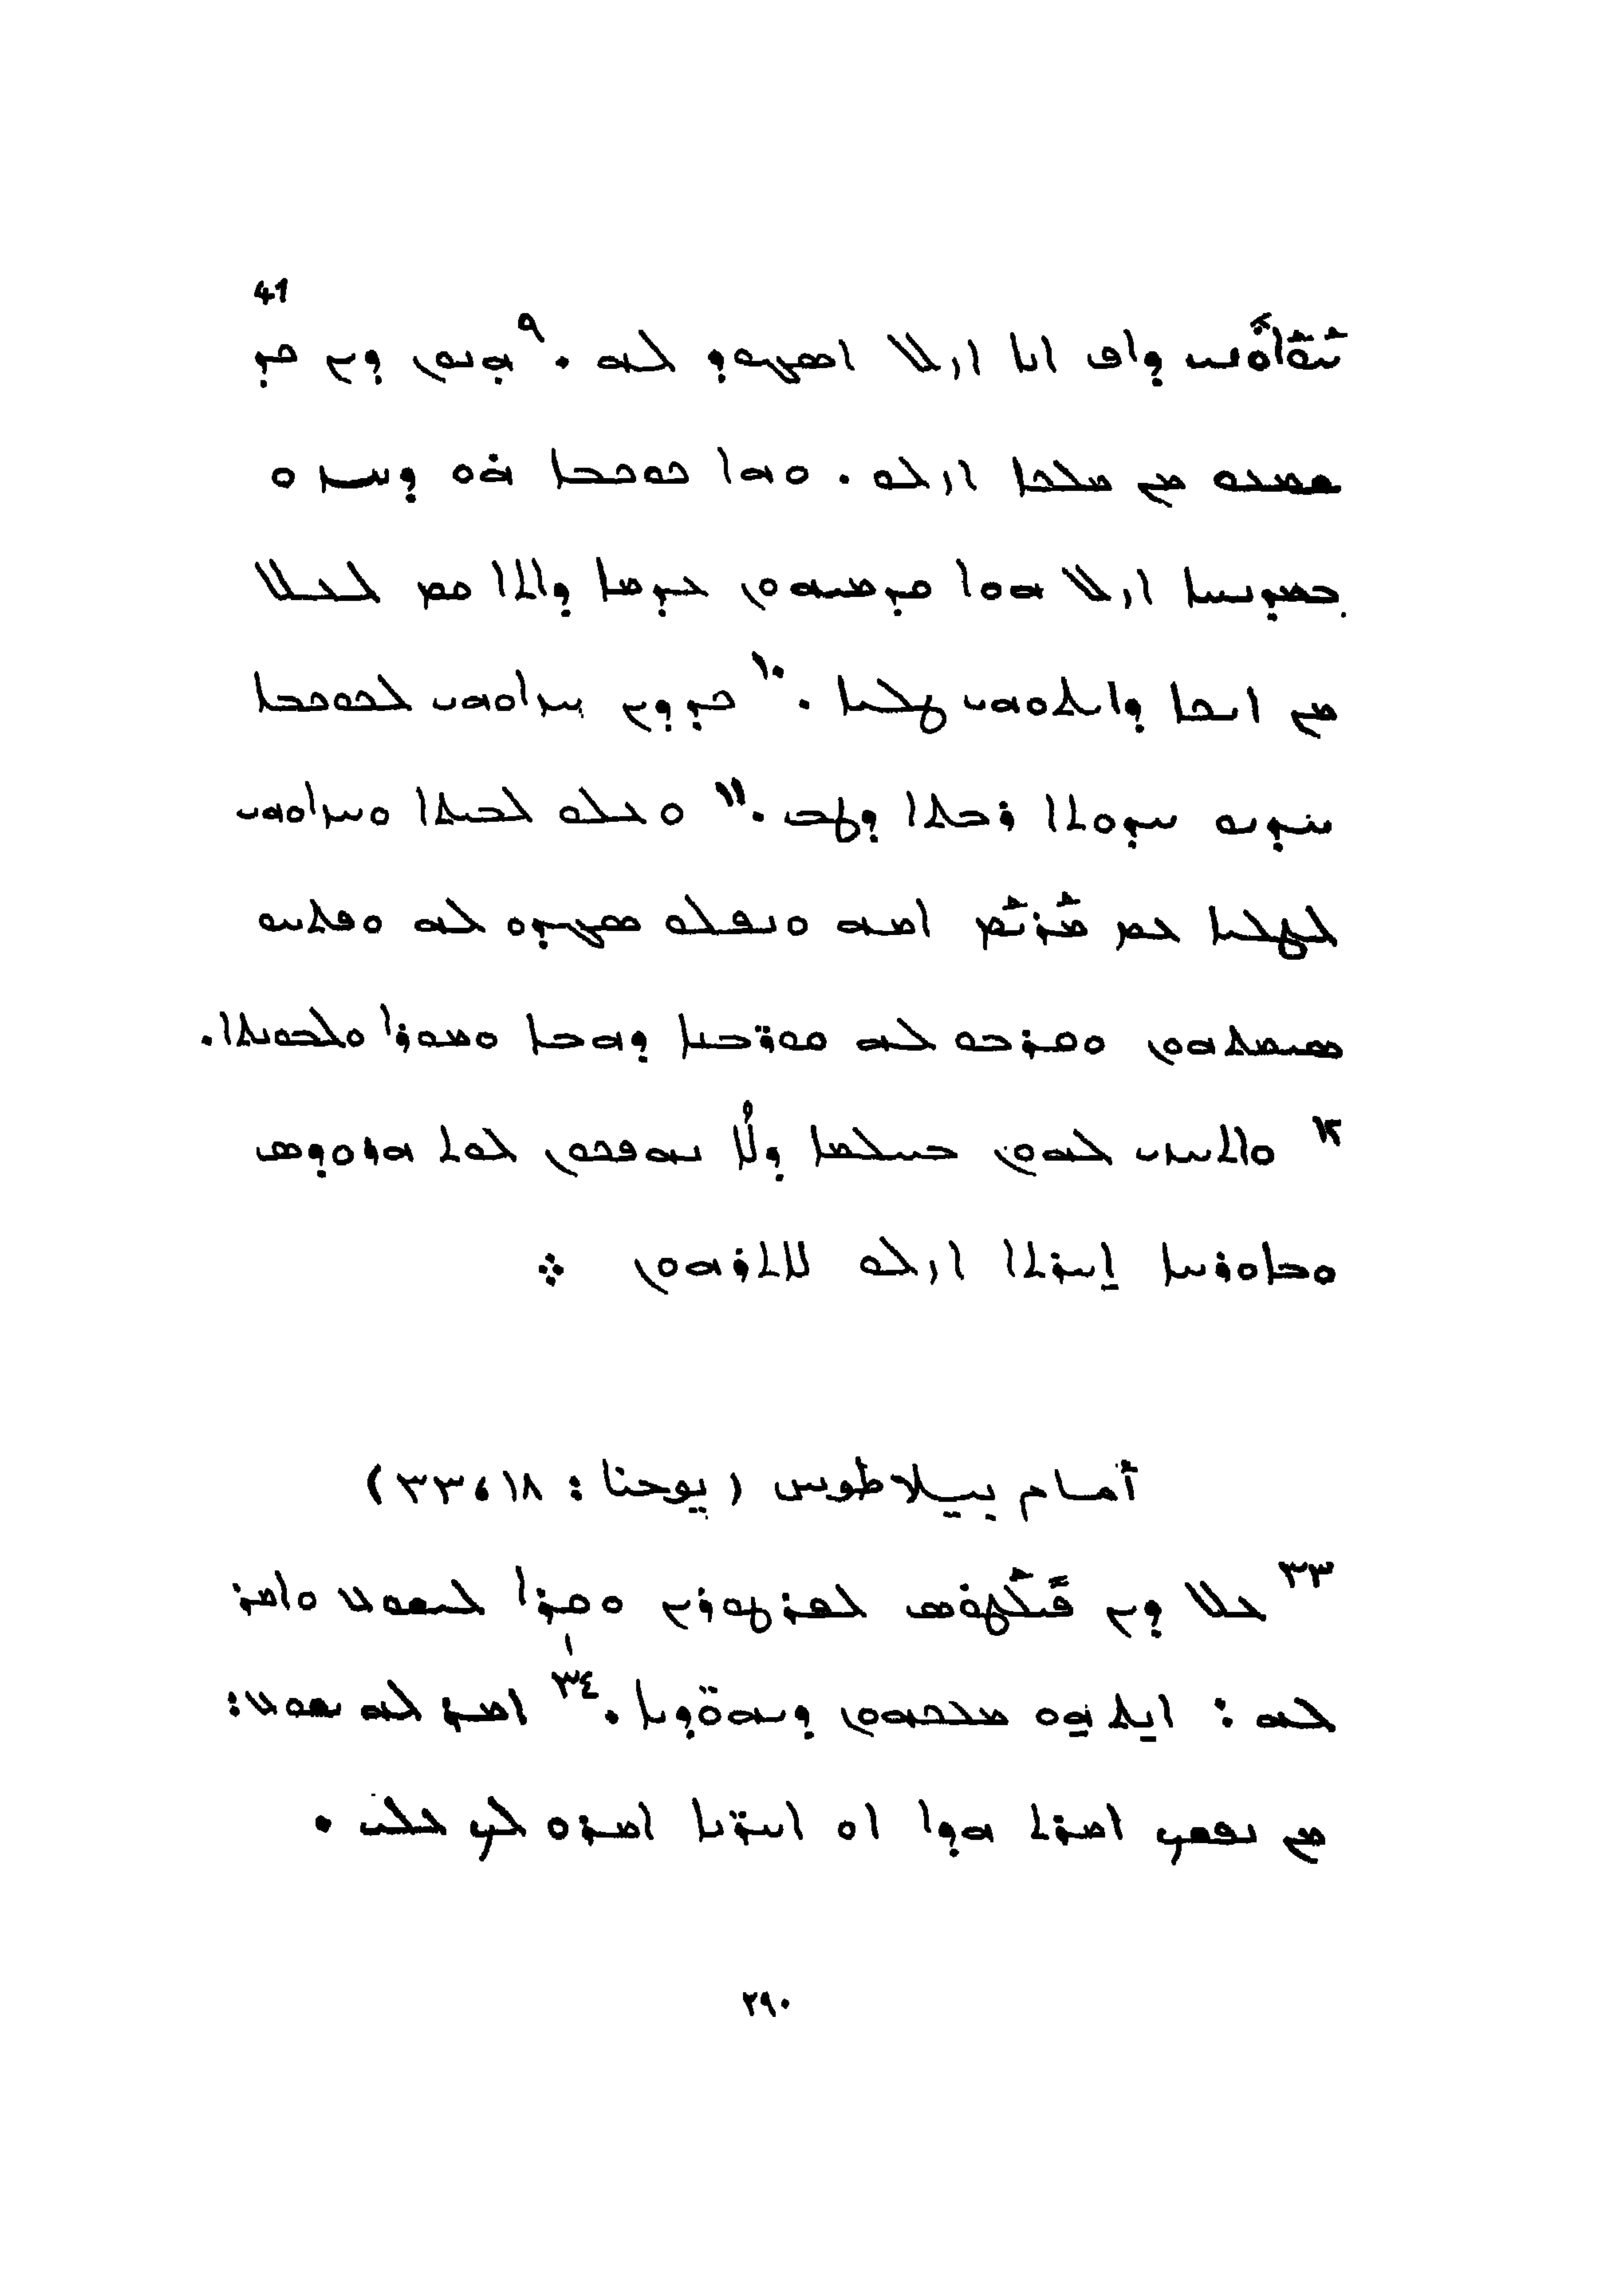 41
ܚܰܘܳܐܽܘܢܝ ܕܐܦ ܐܢܐ ܐܙܠ ܐܣܓܘܕ ܠܗ . ٩ ܗܢܘܢ ܕܝܢ ܟܕ
ܫܡܥܘ ܡܢ ܡܠܟܐ ܐܙܠܘ . ܘܗܐ ܟܘܟܒܐ ܗ̇ܘ ܕܚܙܘ
ܒܡܕܢܚܐ ܐܙܠ ܗܘܐ ܩܕܡܝܗܘܢ ܥܕܡܐ ܕܐܬܐ ܩܡ ܠܥܠ
ܡܢ ܐܝܟܐ ܕܐܝܬܘܗܝ ܛܠܝܐ . ١٠ ܟܕ ܕܝܢ ܚܙܐܘܗܝ ܠܟܘܟܒܐ
ܚܕܝܘ ܚܕܘܬܐ ܪܒܬܐ ܕܛܒ . ١١ ܘܥܠܘ ܠܒܝܬܐ ܘܚܙܐܘܗܝ
ܠܛܠܝܐ ܥܡ ܡܰܪܝܰܡ ܐܡܗ ܘܢܦܠܘ ܣܓܕܘ ܠܗ ܘܦܬܚܘ
ܣܝܡܬܗܘܢ ܘܩܪܒܘ ܠܗ ܩܘܪ̈ܒܢܐ ܕܗܒܐ ܘܡܘܪܐ ܘܠܒܘܢܬܐ.
١٢ ܘܐܬܚܙܝ ܠܗܘܢ ܒܚܠܡܐ ܕܠܐ ܢܗܦܟܘܢ ܠܘܬ ܗܪܘܕܣ
ܘܒܐܘܪܚܐ ܐܚܪܬܐ ܐܙܠܘ ܠܐܬܪܗܘܢ ܀
أمام بيلاطوس (يوحنا : ١٨، ٣٣)
٣٣ ܥܠ ܕܝܢ ܦܺܝܠܰܛܘܣ ܠܦܪܛܘܪܝܢ ܘܩܪܐ ܠܝܫܘܥ ܘܐܡܪ
ܠܗ : ܐܢܬ ܗܘ ܡܠܟܗܘܢ ܕܝܗܘ̈ܕܝܐ . ٣٤ ܐܡܪ ܠܗ ܝܫܘܥ:
ܡܢ ܢܦܫܟ ܐܡܪܬ ܗܕܐ ܐܘ ܐܚܪ̈ܢܐ ܐܡܪܘ ܠܟ ܥܠܝ .
٢٩٠